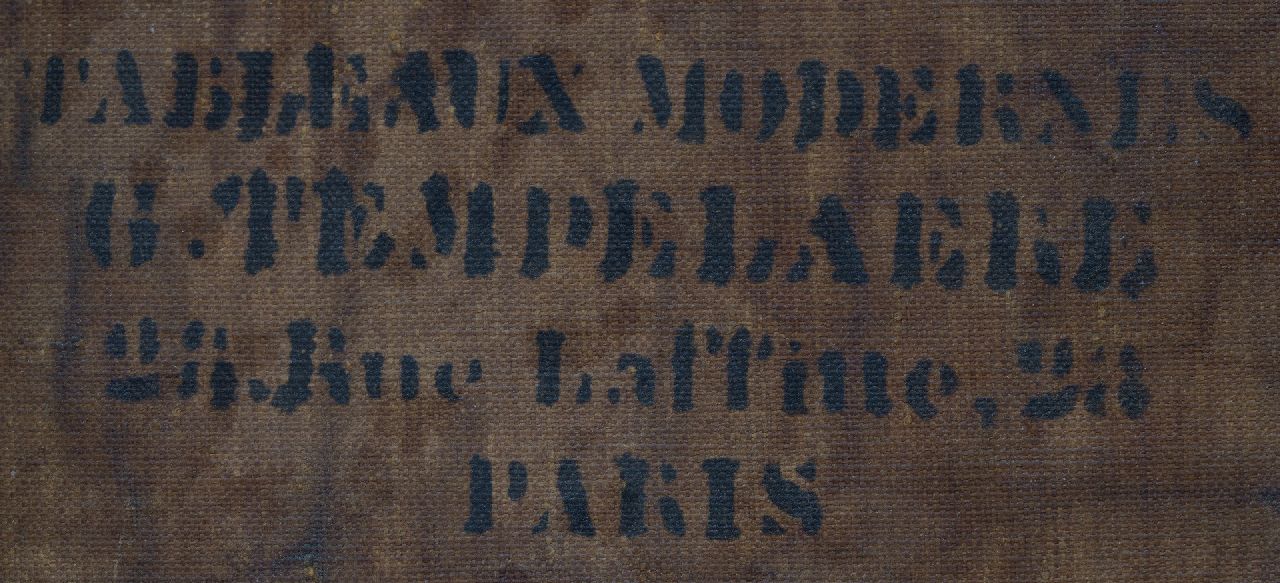 TABLEAUX MODERNES
G. TEMPELAERE
28, Rue Laffitte, 28
PARIS